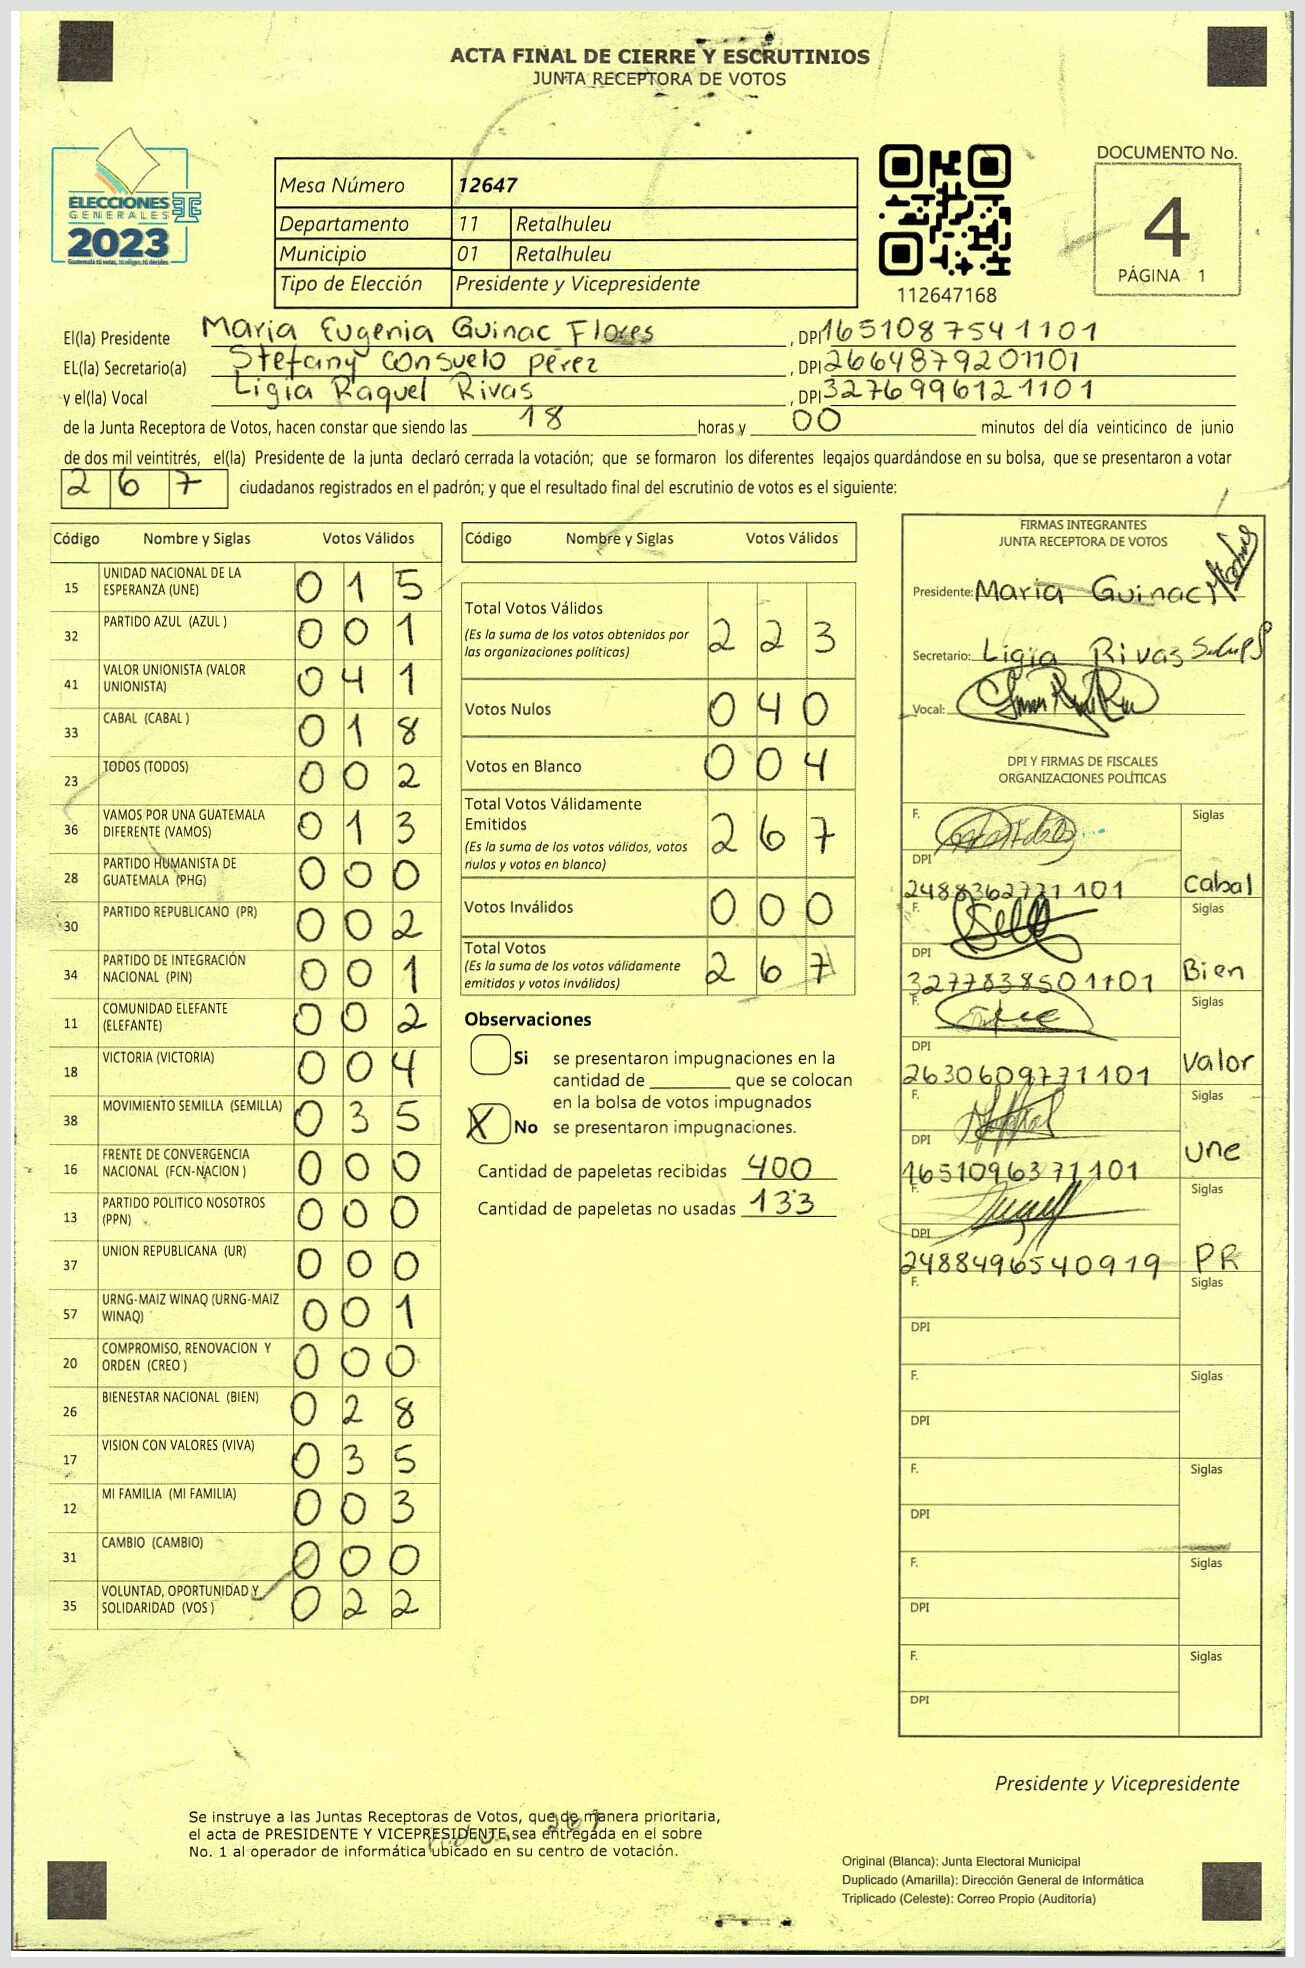 ACTA FINAL DE CIERRE Y ESCRUTINIOS
JUNTA RECEPTORA DE VOTOS
ELECCIONES
GENERALES
2023
Guatemala tú votas, tú eliges, tú decides
Mesa Número 12647
Departamento 11 Retalhuleu
Municipio 01 Retalhuleu
Tipo de Elección Presidente y Vicepresidente
112647168
DOCUMENTO No.
4
PÁGINA 1
El(la) Presidente Maria Eugenia Guinac Flores, DPI 1651087541101
EL(la) Secretario(a) Stefany Consuelo perez, DPI 2664879201101
y el(la) Vocal Ligia Raquel Rivas, DPI 3276996121101
de la Junta Receptora de Votos, hacen constar que siendo las 18 horas y 00 minutos del día veinticinco de junio
de dos mil veintitrés, el(la) Presidente de la junta declaró cerrada la votación; que se formaron los diferentes legajos guardándose en su bolsa, que se presentaron a votar
267 ciudadanos registrados en el padrón; y que el resultado final del escrutinio de votos es el siguiente:
Código Nombre y Siglas Votos Válidos
15 UNIDAD NACIONAL DE LA ESPERANZA (UNE) 015
32 PARTIDO AZUL (AZUL ) 001
41 VALOR UNIONISTA (VALOR UNIONISTA) 041
33 CABAL (CABAL ) 018
23 TODOS (TODOS) 002
36 VAMOS POR UNA GUATEMALA DIFERENTE (VAMOS) 013
28 PARTIDO HUMANISTA DE GUATEMALA (PHG) 000
30 PARTIDO REPUBLICANO (PR) 002
34 PARTIDO DE INTEGRACIÓN NACIONAL (PIN) 001
11 COMUNIDAD ELEFANTE (ELEFANTE) 002
18 VICTORIA (VICTORIA) 004
38 MOVIMIENTO SEMILLA (SEMILLA) 035
16 FRENTE DE CONVERGENCIA NACIONAL (FCN-NACION ) 000
13 PARTIDO POLITICO NOSOTROS (PPN) 000
37 UNION REPUBLICANA (UR) 000
57 URNG-MAIZ WINAQ (URNG-MAIZ WINAQ) 001
20 COMPROMISO, RENOVACION Y ORDEN (CREO ) 000
26 BIENESTAR NACIONAL (BIEN) 028
17 VISION CON VALORES (VIVA) 035
12 MI FAMILIA (MI FAMILIA) 003
31 CAMBIO (CAMBIO) 000
35 VOLUNTAD, OPORTUNIDAD Y SOLIDARIDAD (VOS ) 022
Código Nombre y Siglas Votos Válidos
Total Votos Válidos 223
(Es la suma de los votos obtenidos por
las organizaciones políticas)
Votos Nulos 040
Votos en Blanco 004
Total Votos Válidamente
Emitidos 267
(Es la suma de los votos válidos, votos
nulos y votos en blanco)
Votos Inválidos 000
Total Votos 267
(Es la suma de los votos válidamente
emitidos y votos inválidos)
Observaciones
Si se presentaron impugnaciones en la
cantidad de ________ que se colocan
en la bolsa de votos impugnados
X No se presentaron impugnaciones.
Cantidad de papeletas recibidas 400
Cantidad de papeletas no usadas 133
FIRMAS INTEGRANTES
JUNTA RECEPTORA DE VOTOS
Presidente: Maria Guinac
Secretario: Ligia Rivas
Vocal:
DPI Y FIRMAS DE FISCALES
ORGANIZACIONES POLÍTICAS
F. Siglas
DPI 2488362771101 Cabal
F. Siglas
DPI 3277838501101 Bien
F. Siglas
DPI 2630609771101 Valor
F. Siglas
DPI 1651096371101 Une
F. Siglas
DPI 2488496540919 PR
F. Siglas
DPI
F. Siglas
DPI
F. Siglas
DPI
F. Siglas
DPI
F. Siglas
DPI
Presidente y Vicepresidente
Se instruye a las Juntas Receptoras de Votos, que de manera prioritaria,
el acta de PRESIDENTE Y VICEPRESIDENTE sea entregada en el sobre
No. 1 al operador de informática ubicado en su centro de votación.
Original (Blanca): Junta Electoral Municipal
Duplicado (Amarilla): Dirección General de Informática
Triplicado (Celeste): Correo Propio (Auditoría)